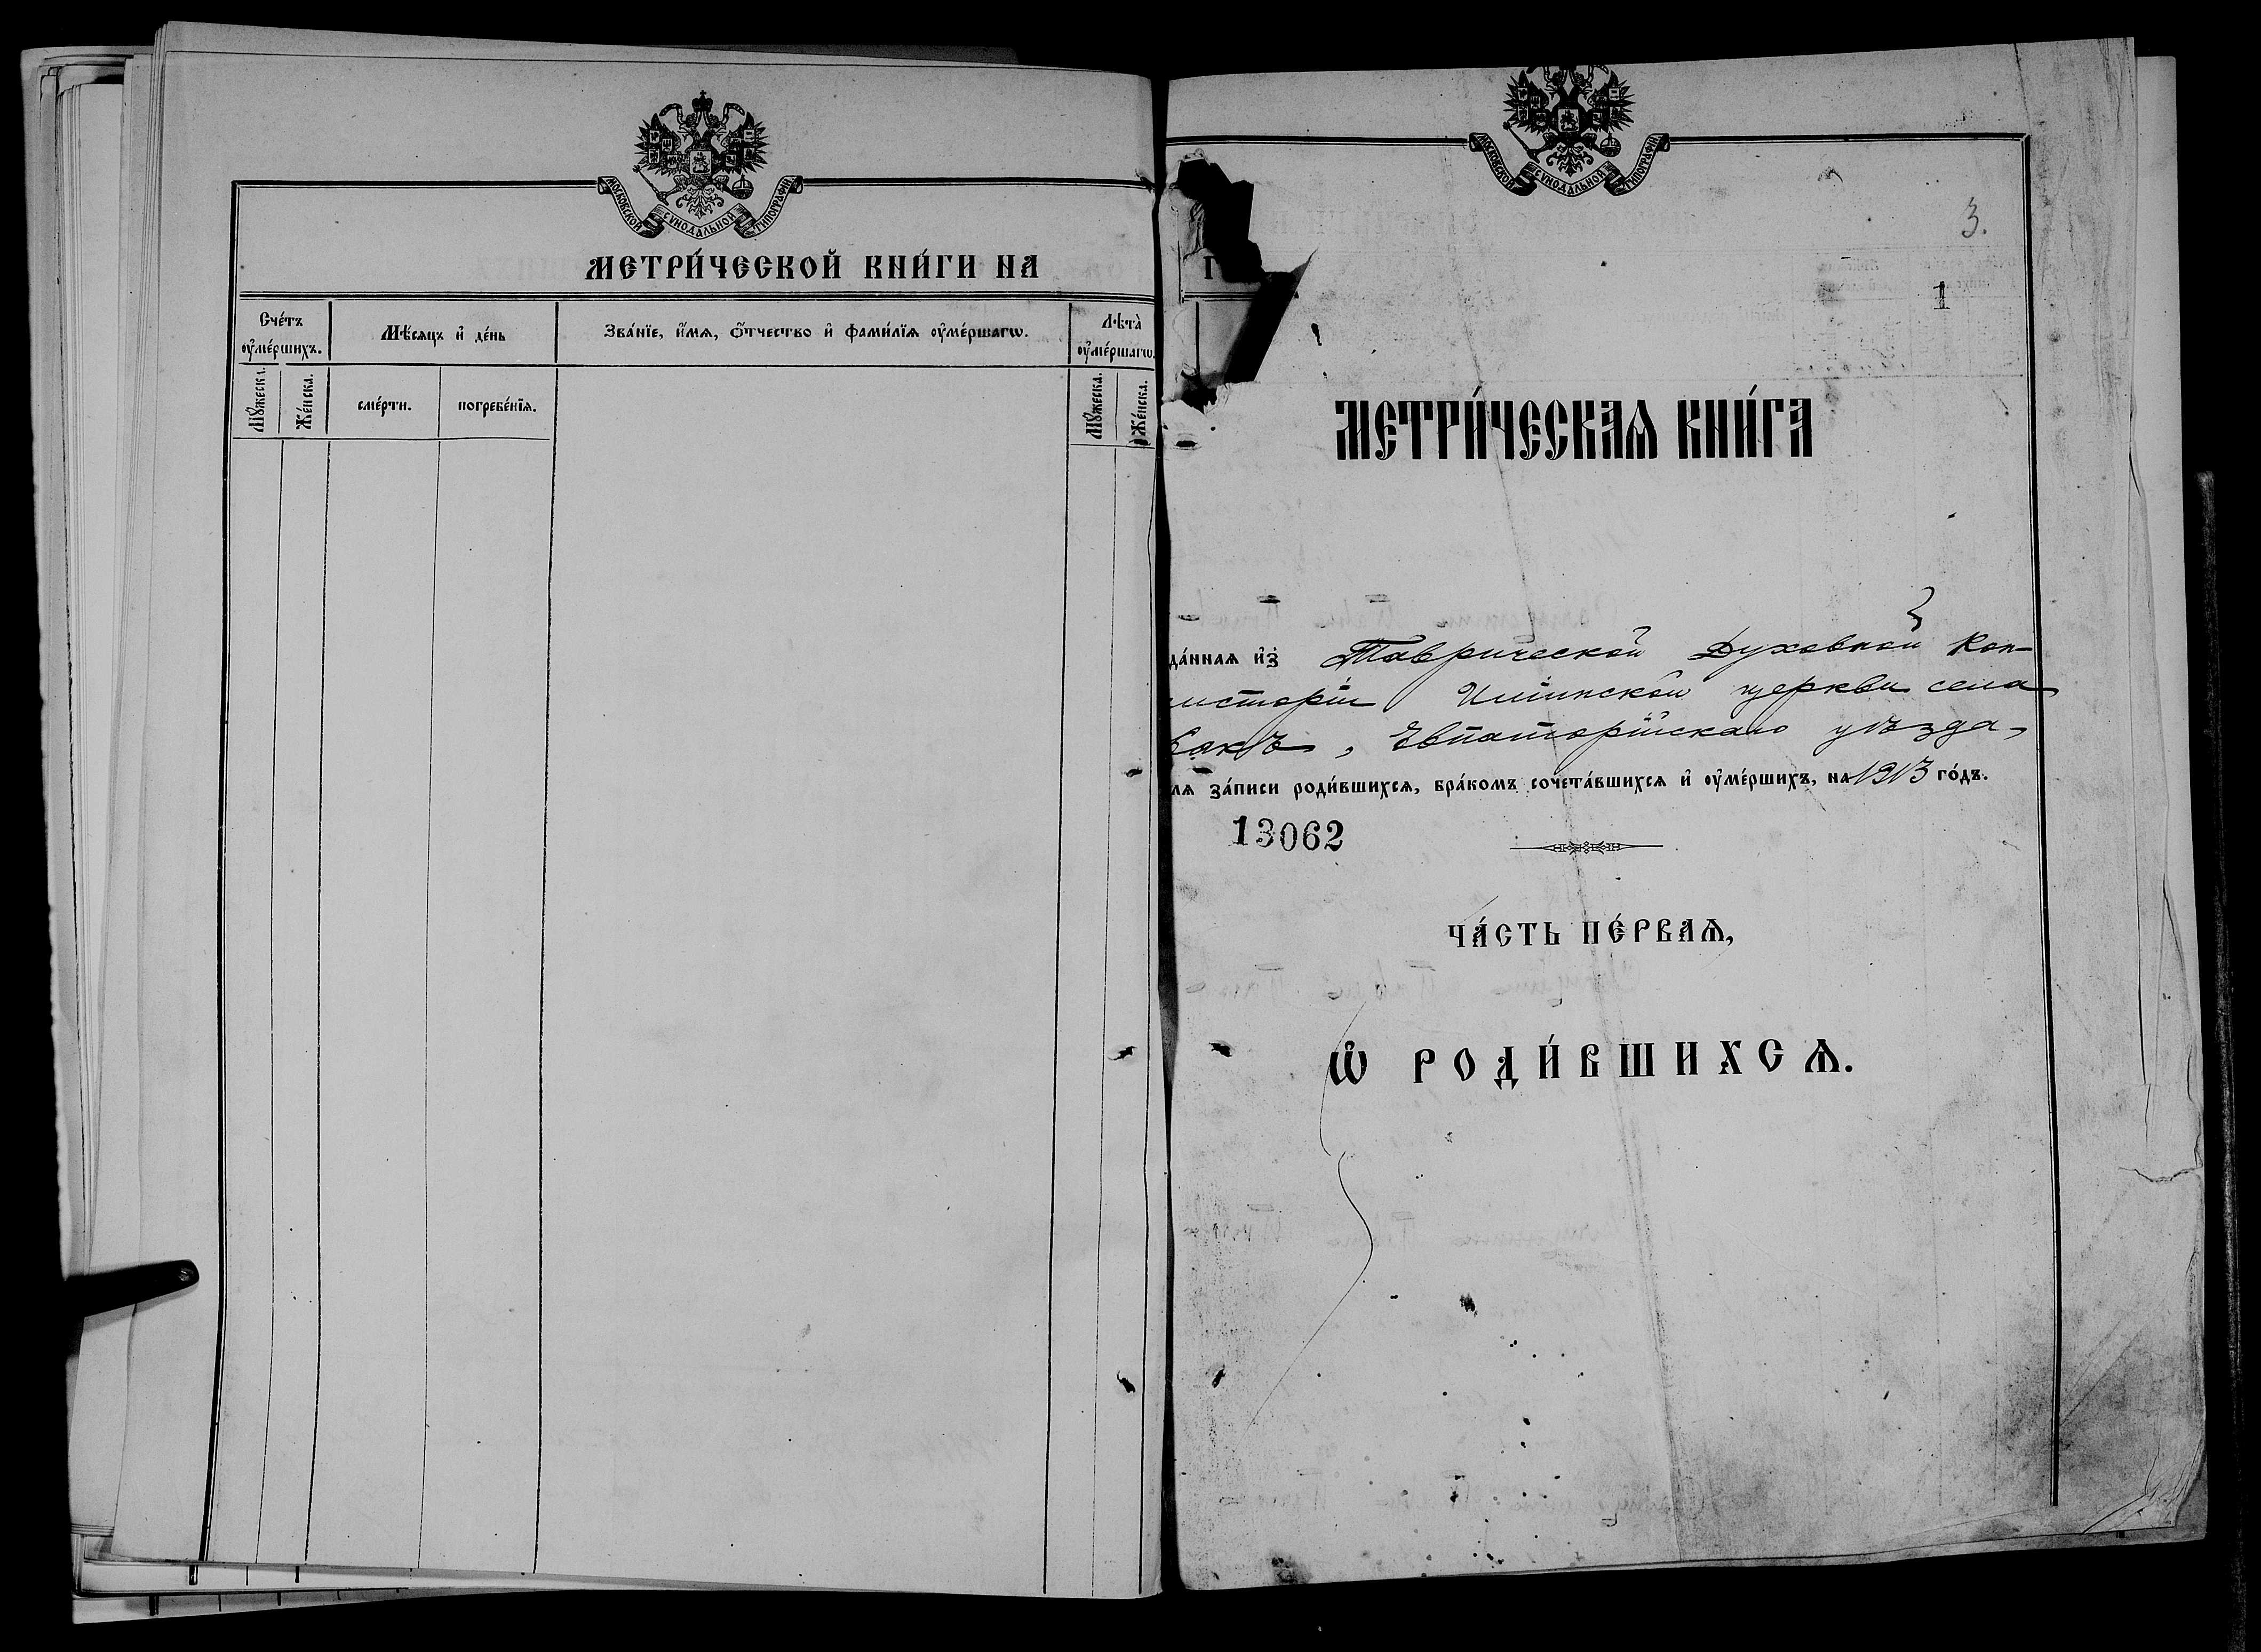 МОСКОВСКОЙ СѴНОДАЛЬНОЙ ТИПОГРАФІИ
МЕТРИ́ЧЕСКОЙ КНИ́ГИ НА
Сче́тъ ᲂу҆ме́ршихъ.
Мѣ́сяцъ и҆ де́нь
Зва́нїе, и҆́мѧ, ѻ҆́тчество и҆ фами́лїѧ ᲂу҆ме́ршагѡ.
Лѣта̀ ᲂу҆ме́ршагѡ.
Мꙋ́жеска.
Же́нска.
сме́рти.
погребе́нїѧ.
Мꙋ́жеска.
Же́нска.
МОСКОВСКОЙ СѴНОДАЛЬНОЙ ТИПОГРАФІИ
3.
1
МЕТРИ́ЧЕСКАѦ КНИ́ГА
да́ннаѧ и҆з̾ Таврической Духовной Кон-
систоріи церкви села
Евпаторійскаго уѣзда,
лѧ за́писи роди́вшихсѧ, бра́комъ сочета́вшихсѧ и҆ ᲂу҆ме́ршихъ, на 1913 го́дъ.
13062
ЧА́СТЬ ПЕ́РВАѦ,
Ѡ҆ РОДИ́ВШИХСѦ.